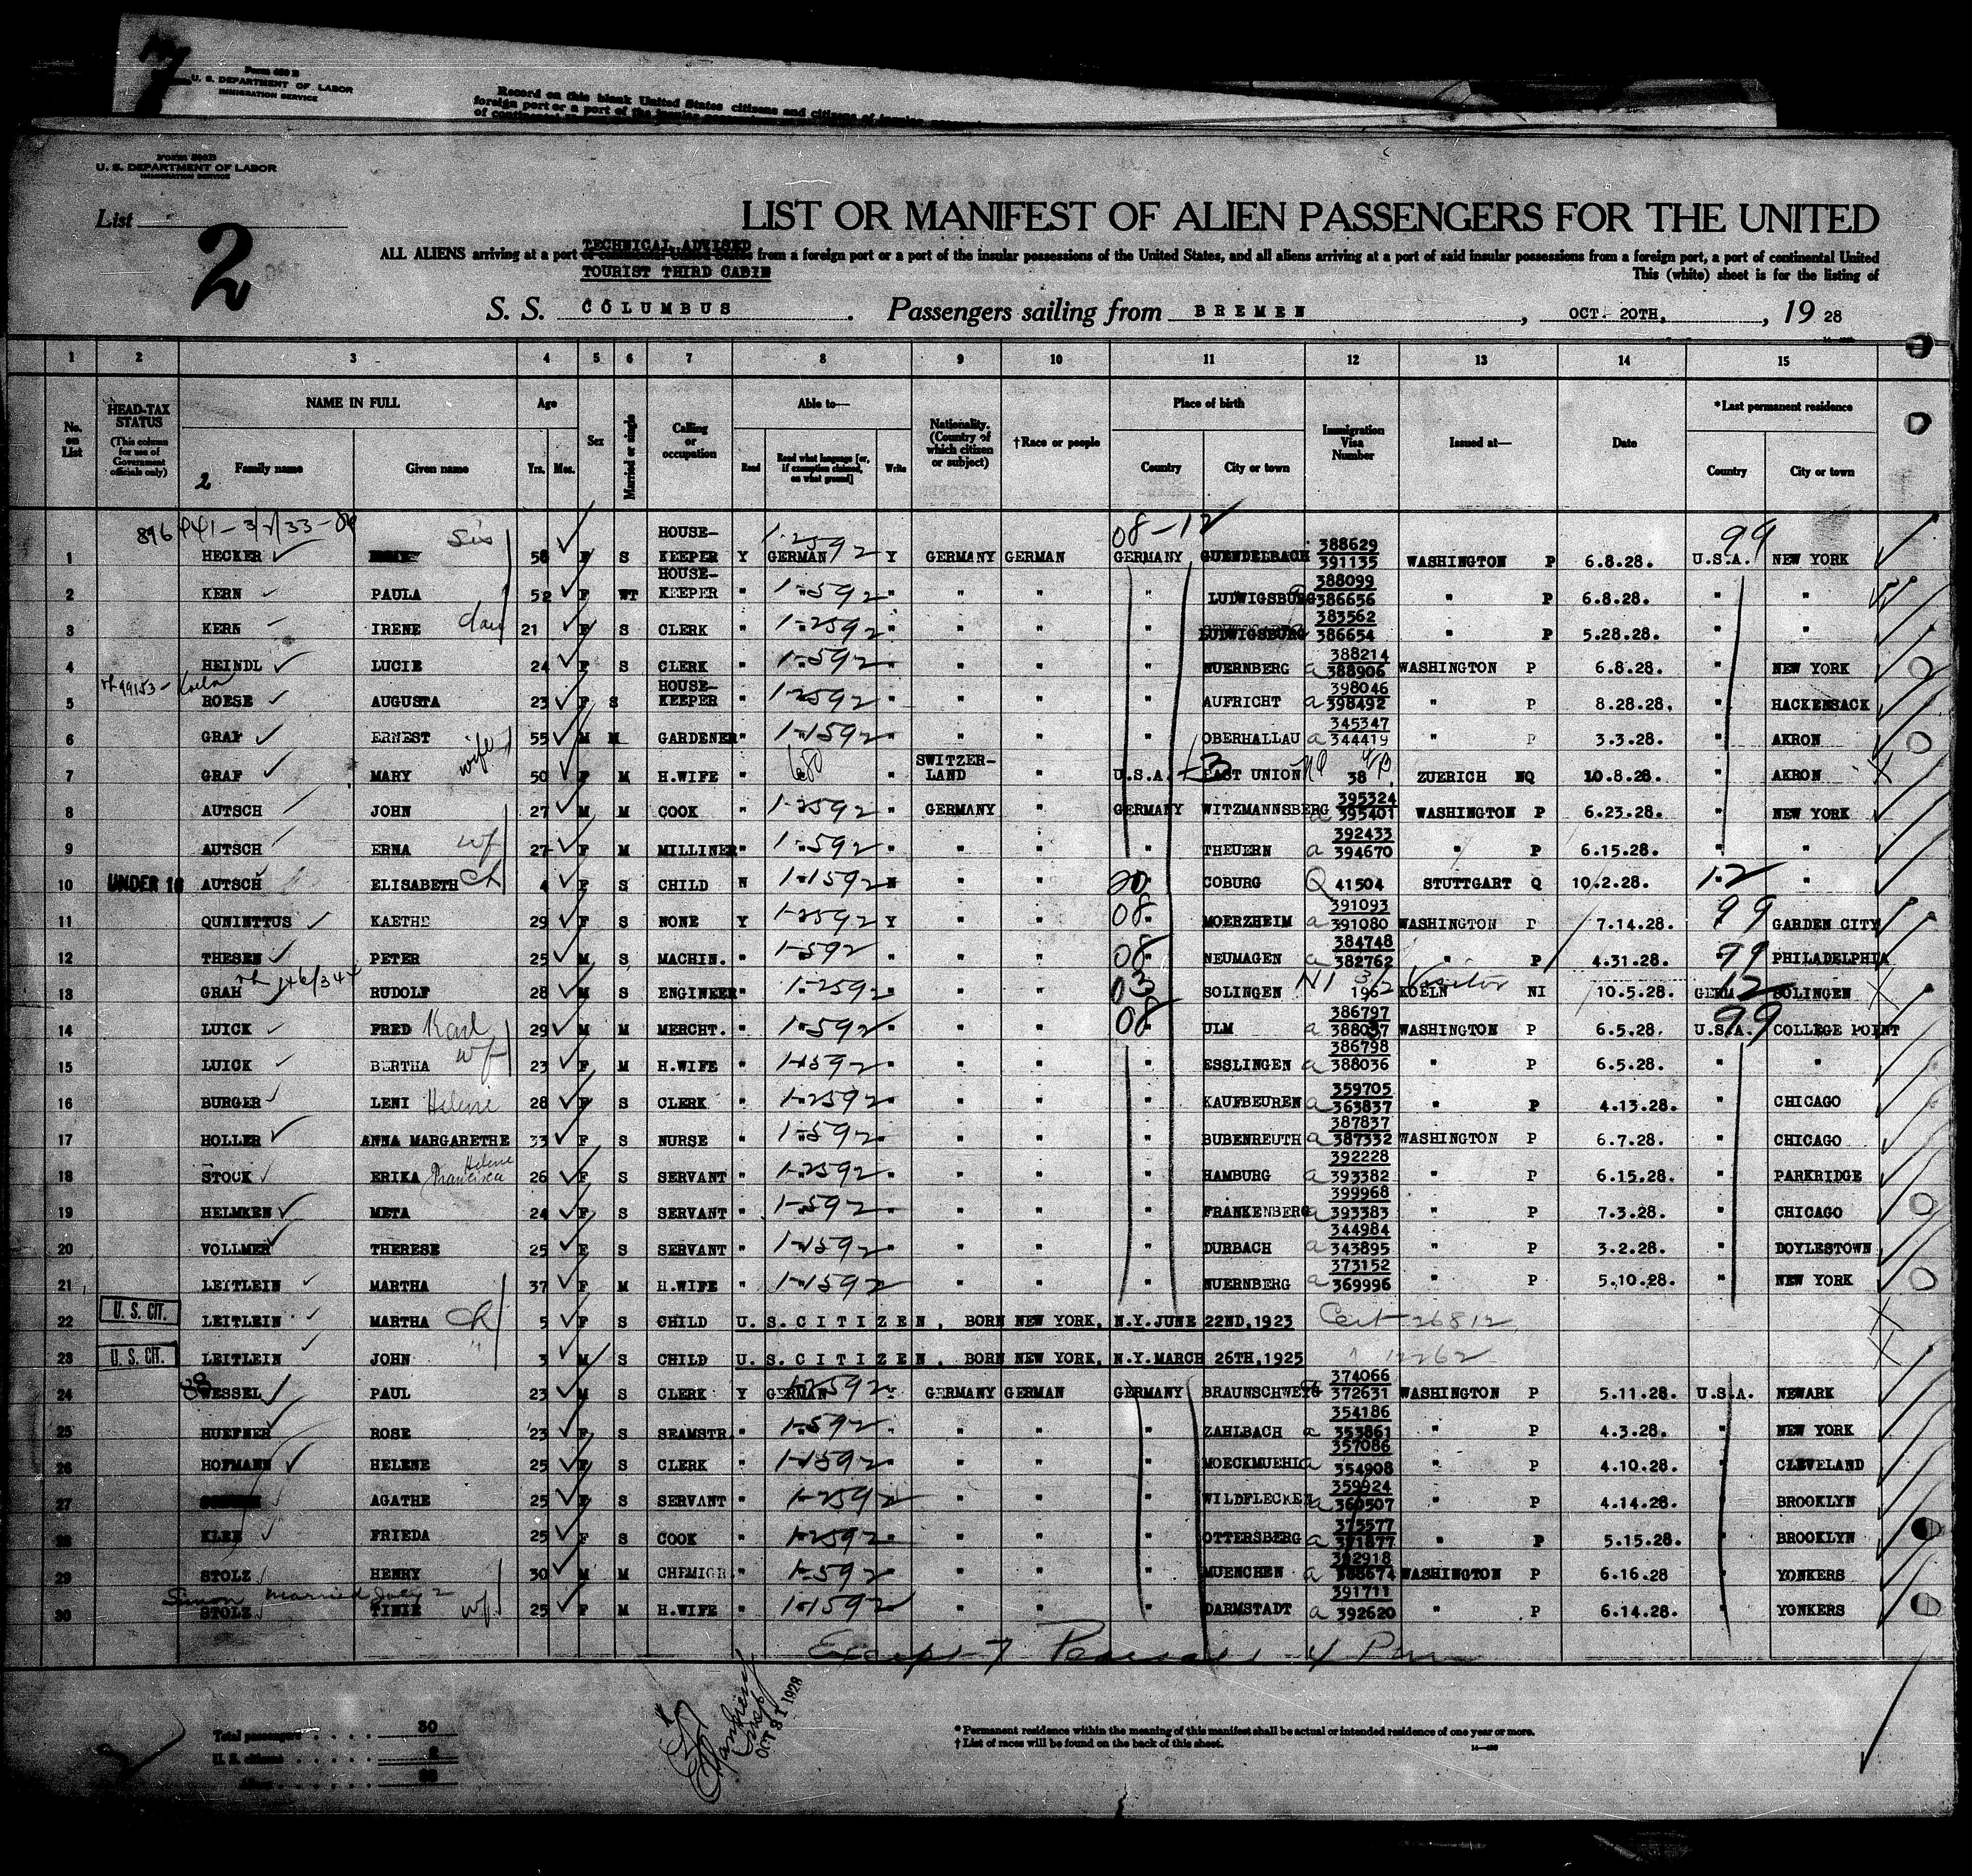 Form 500 B
U. S. DEPARTMENT OF LABOR
IMMIGRATION SERVICE
Record on this blank United States citizens and citizens of
foreign port or a port of the insular
of continental
U. S. DEPARTMENT OF LABOR
IMMIGRATION SERVICE
List 2
LIST OR MANIFEST OF ALIEN PASSENGERS FOR THE UNITED
TECHNICAL ADVISED
ALL ALIENS arriving at a port of continental United States from a foreign port or a port of the insular possessions of the United States, and all aliens arriving at a port of said insular possessions from a foreign port, a port of continental United
TOURIST THIRD CABIN
This (white) sheet is for the listing of
S. S. COLUMBUS. Passengers sailing from BREMEN, OCT. 20TH, , 19 28
1 2 3 4 5 6 7 8 9 10 11 12 13 14 15
No. on List
HEAD-TAX STATUS (This column for use of Government officials only)
NAME IN FULL
Family name Given name
Age Yrs. Mos.
Sex
Married or single
Calling or occupation
Able to— Read Read what language [or, if exemption claimed, on what ground] Write
Nationality. (Country of which citizen or subject)
†Race or people
Place of birth Country City or town
Immigration Visa Number
Issued at—
Date
*Last permanent residence Country City or town
2
08-12 99
1 HECKER Sis 58 F S HOUSE-KEEPER Y GERMAN Y GERMANY GERMAN GERMANY GUENDELBACH 388629 391135 WASHINGTON P 6.8.28. U.S.A. NEW YORK
2 KERN PAULA 52 F WT HOUSE-KEEPER " 1-592 " " " " LUDWIGSBURG 388099 386656 " P 6.8.28. " "
3 KERN IRENE dau 21 F S CLERK " 1-2592 " " " " LUDWIGSBURG 383562 386654 " P 5.28.28. " "
4 HEINDL LUCIE 24 F S CLERK " 1-592 " " " " NUERNBERG 388214 388906 WASHINGTON P 6.8.28. " NEW YORK
5 ROESE AUGUSTA 23 F S HOUSE-KEEPER " 1-2592 " " " " AUFRICHT 398046 398492 " P 8.28.28. " HACKENSACK
6 GRAF ERNEST 55 M M GARDENER " 1-1592 " " " " OBERHALLAU 345347 344419 " P 3.3.28. " AKRON
7 GRAF MARY wife 50 F M H.WIFE " " SWITZER-LAND " U.S.A. EAST UNION 38 ZUERICH NQ 10.8.28. " AKRON
8 AUTSCH JOHN 27 M M COOK " 1-2592 " GERMANY " GERMANY WITZMANNSBERG 395324 395401 WASHINGTON P 6.23.28. " NEW YORK
9 AUTSCH ERNA wf 27 F M MILLINER " 1-592 " " " " THEUERN 392433 394670 " P 6.15.28. " "
10 UNDER 16 AUTSCH ELISABETH ch 4 F S CHILD N 1-1592 N " " " COBURG Q 41504 STUTTGART Q 10.2.28. 12 "
11 QUNINTTUS KAETHE 29 F S NONE Y 1-2592 Y " " 08 MOERZHEIM 391093 391080 WASHINGTON P 7.14.28. 99 GARDEN CITY
12 THESEN PETER 25 M S MACHIN. " 1-592 " " " 08 NEUMAGEN 384748 382762 " P 4.31.28. 99 PHILADELPHIA
13 GRAH RUDOLF 28 M S ENGINEER " 1-2592 " " " 03 SOLINGEN NI 196 KOELN Visitor NI 10.5.28. GERM. 12 SOLINGEN
14 LUICK FRED Karl 29 M M MERCHT. " 1-592 " " " 08 ULM 386797 388037 WASHINGTON P 6.5.28. U.S.A. 99 COLLEGE POINT
15 LUICK BERTHA wf 23 F M H.WIFE " 1-1592 " " " " ESSLINGEN 386798 388036 " P 6.5.28. " "
16 BURGER LENI Helene 28 F S CLERK " 1-2592 " " " " KAUFBEUREN 359705 363837 " P 4.13.28. " CHICAGO
17 HOLLER ANNA MARGARETHE 33 F S NURSE " 1-592 " " " " BUBENREUTH 387837 387332 WASHINGTON P 6.7.28. " CHICAGO
18 STOCK ERIKA Helene Francisca 26 F S SERVANT " 1-2592 " " " " HAMBURG 392228 393382 " P 6.15.28. " PARKRIDGE
19 HELMKEN META 24 F S SERVANT " 1-592 " " " " FRANKENBERG 399968 393383 " P 7.3.28. " CHICAGO
20 VOLLMER THERESE 25 F S SERVANT " 1-1592 " " " " DURBACH 344984 343895 " P 3.2.28. " DOYLESTOWN
21 LEITLEIN MARTHA 37 F M H.WIFE " 1-1592 " " " " NUERNBERG 373152 369996 " P 5.10.28. " NEW YORK
22 U. S. CIT. LEITLEIN MARTHA ch 5 F S CHILD U.S.CITIZEN, BORN NEW YORK, N.Y. JUNE 22ND, 1923 Cert 26812
23 U. S. CIT. LEITLEIN JOHN " 3 M S CHILD U.S.CITIZEN, BORN NEW YORK, N.Y. MARCH 26TH, 1925 12262
24 WESSEL PAUL 23 M S CLERK Y GERMAN Y GERMANY GERMAN GERMANY BRAUNSCHWEIG 374066 372631 WASHINGTON P 5.11.28. U.S.A. NEWARK
25 HUEFNER ROSE 23 F S SEAMSTR. " 1-592 " " " " ZAHLBACH 354186 353861 " P 4.3.28. " NEW YORK
26 HOFMANN HELENE 25 F S CLERK " 1-1592 " " " " MOECKMUEHL 357086 354908 " P 4.10.28. " CLEVELAND
27 AGATHE 25 F S SERVANT " 1-2592 " " " " WILDFLECKEN 359924 360507 " P 4.14.28. " BROOKLYN
28 KLEE FRIEDA 25 F S COOK " 1-2592 " " " " OTTERSBERG 375577 371877 " P 5.15.28. " BROOKLYN
29 STOLZ HENRY 30 M M CHEMICR. " 1-592 " " " " MUENCHEN 392918 388674 WASHINGTON P 6.16.28 " YONKERS
Simon married July 2
30 STOLZ TINIE wf. 25 F M H.WIFE " 1-1592 " " " " DARMSTADT 391711 392620 " P 6.14.28. " YONKERS
Except 7
OCT 31 1928
Total passengers 30
U. S. citizens 2
Aliens 28
* Permanent residence within the meaning of this manifest shall be actual or intended residence of one year or more.
† List of races will be found on the back of this sheet.